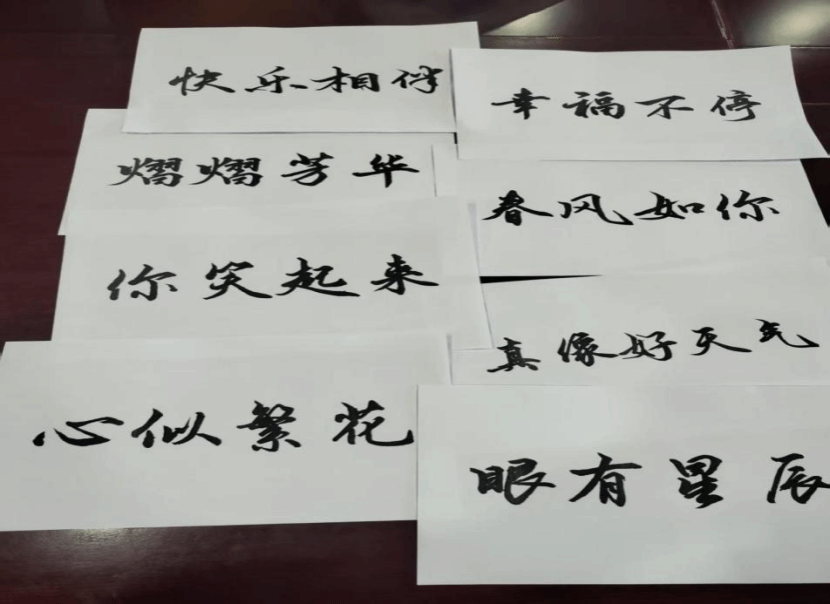 快乐相伴
幸福不停
熠熠芳华
春风如你
你笑起来
真像好天气
心似繁花
眼有星辰